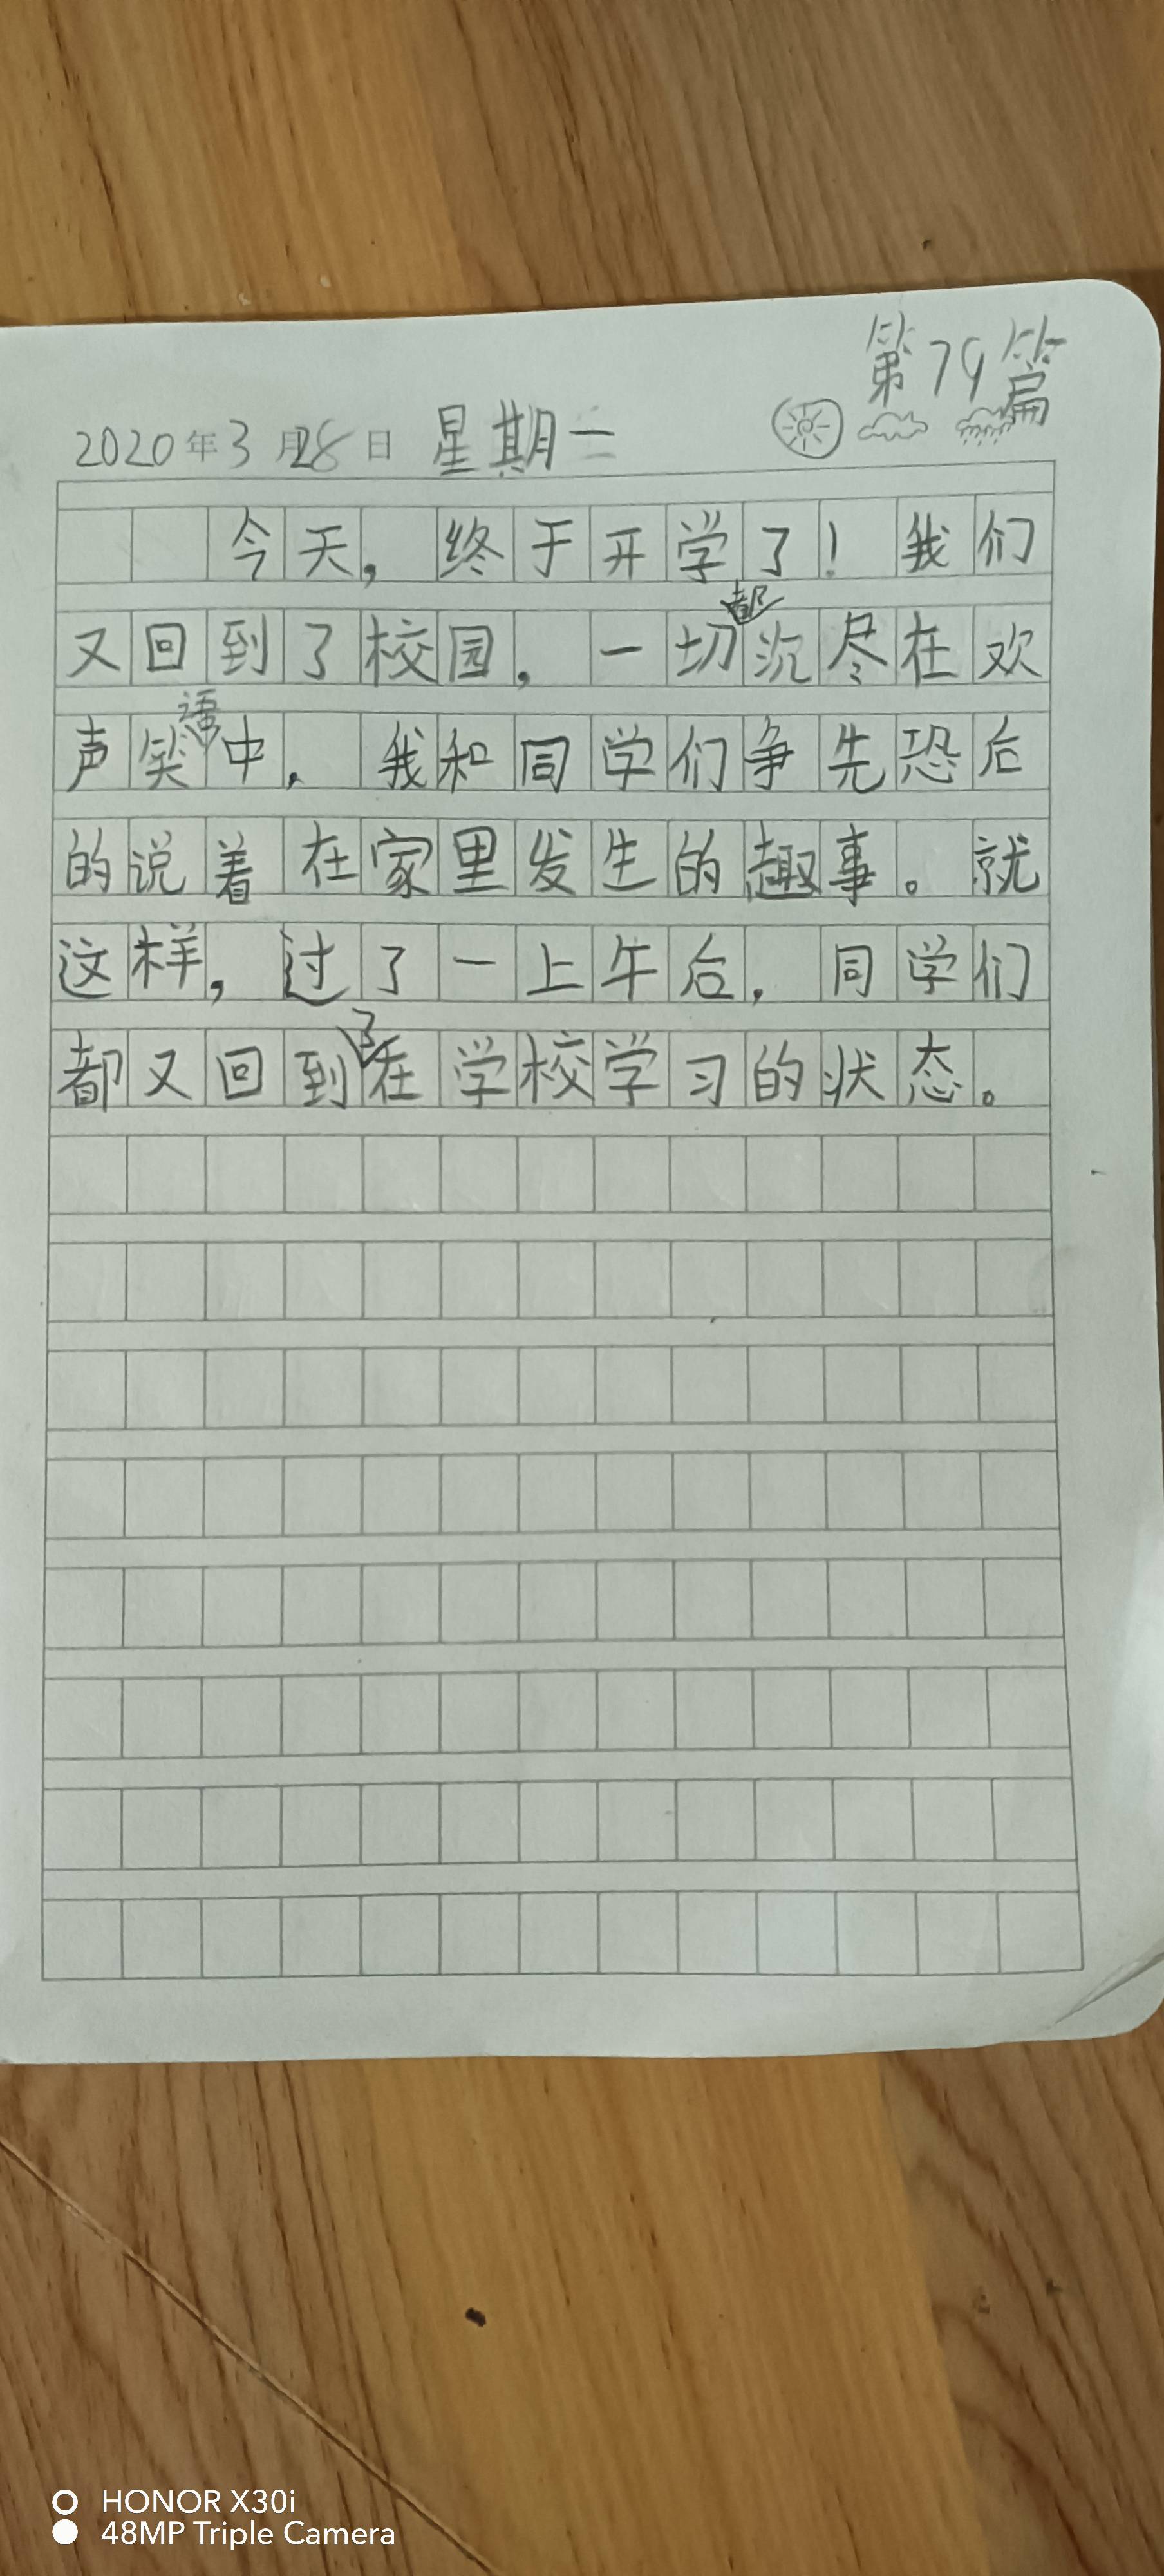 第79篇
2020年3月28日 星期二
今天，终于开学了！我们
又回到了校园，一切都沉尽在欢
声笑语中，我和同学们争先恐后
的说着在家里发生的趣事。就
这样，过了一上午后，同学们
都又回到了在学校学习的状态。
HONOR X30i
48MP Triple Camera